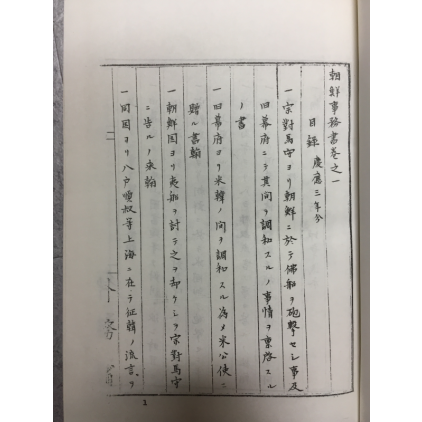 朝鮮事務書巻之一
目録 慶應三年分
一宗對馬守ヨリ朝鮮ニ於テ佛船ヲ砲撃セシ事及
旧幕府ニテ其間ヲ調和スルノ事情ヲ稟啓スル
ノ書
一旧幕府ヨリ米韓ノ間ヲ調和スル為メ米公使ニ
贈ル書翰
一朝鮮国ヨリ夷船ヲ討テ之ヲ却ケシヲ宗對馬守
ニ告ルノ来翰
一同国ヨリ八戸順叔等上海ニ在テ征韓ノ流言ヲ
外務省
1